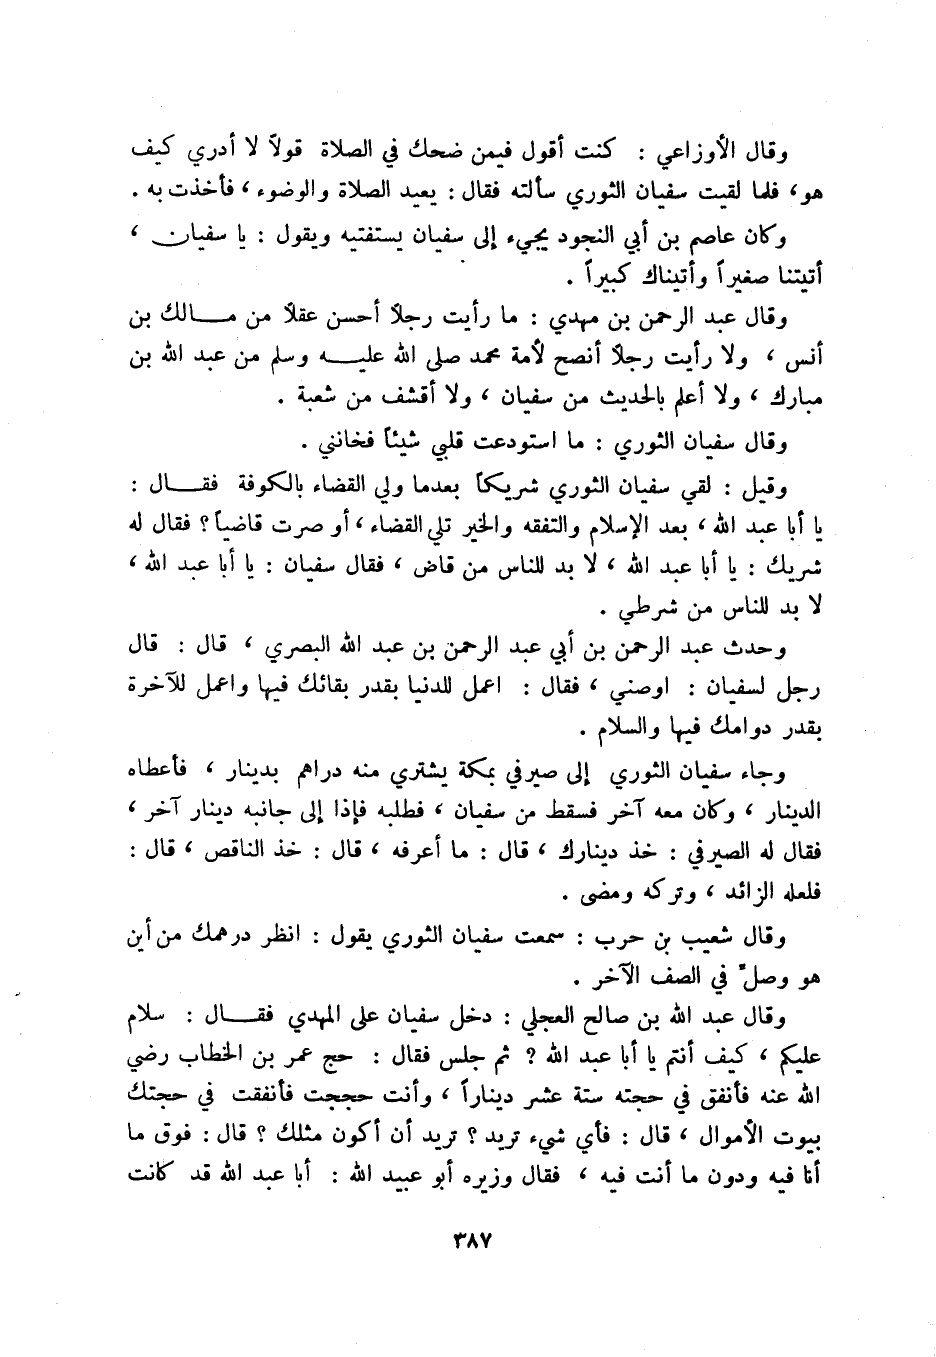 وقال الأوزاعي : كنت أقول فيمن ضحك في الصلاة قولاً لا أدري كيف
هو ، فلما لقيت سفيان الثوري سألته فقال : يعيد الصلاة والوضوء ، فأخذت به .
وكان عاصم بن أبي النجود يجيء إلى سفيان يستفتيه ويقول : يا سفيان ،
أتيتنا صغيراً وأتيناك كبيراً .
وقال عبد الرحمن بن مهدي : ما رأيت رجلاً أحسن عقلاً من مـــالك بن
أنس ، ولا رأيت رجلاً أنصح لأمة محمد صلى الله عليـــه وسلم من عبد الله بن
مبارك ، ولا أعلم بالحديث من سفيان ، ولا أقشف من شعبة .
وقال سفيان الثوري : ما استودعت قلبي شيئاً فخانني .
وقيل : لقي سفيان الثوري شريكاً بعدما ولي القضاء بالكوفة فقـــال :
يا أبا عبد الله ، بعد الإسلام والتفقه والخير تلي القضاء ، أو صرت قاضياً ؟ فقال له
شريك : يا أبا عبد الله ، لا بد للناس من قاض ، فقال سفيان : يا أبا عبد الله ،
لا بد للناس من شرطي .
وحدث عبد الرحمن بن أبي عبد الرحمن بن عبد الله البصري ، قال : قال
رجل لسفيان : اوصني ، فقال : اعمل للدنيا بقدر بقائك فيها واعمل للآخرة
بقدر دوامك فيها والسلام .
وجاء سفيان الثوري إلى صيرفي بمكة يشتري منه دراهم بدينار ، فأعطاه
الدينار ، وكان معه آخر فسقط من سفيان ، فطلبه فإذا إلى جانبه دينار آخر ،
فقال له الصيرفي : خذ دينارك ، قال : ما أعرفه ، قال : خذ الناقص ، قال :
فلعله الزائد ، وتركه ومضى .
وقال شعيب بن حرب : سمعت سفيان الثوري يقول : انظر درهمك من أين
هو وصلّ في الصف الآخر .
وقال عبد الله بن صالح العجلي : دخل سفيان على المهدي فقـــال : سلام
عليكم ، كيف أنتم يا أبا عبد الله ؟ ثم جلس فقال : حج عمر بن الخطاب رضي
الله عنه فأنفق في حجته ستة عشر ديناراً ، وأنت حججت فأنفقت في حجتك
بيوت الأموال ، قال : فأي شيء تريد ؟ تريد أن أكون مثلك ؟ قال : فوق ما
أنا فيه ودون ما أنت فيه ، فقال وزيره أبو عبيد الله : أبا عبد الله قد كانت
٣٨٧